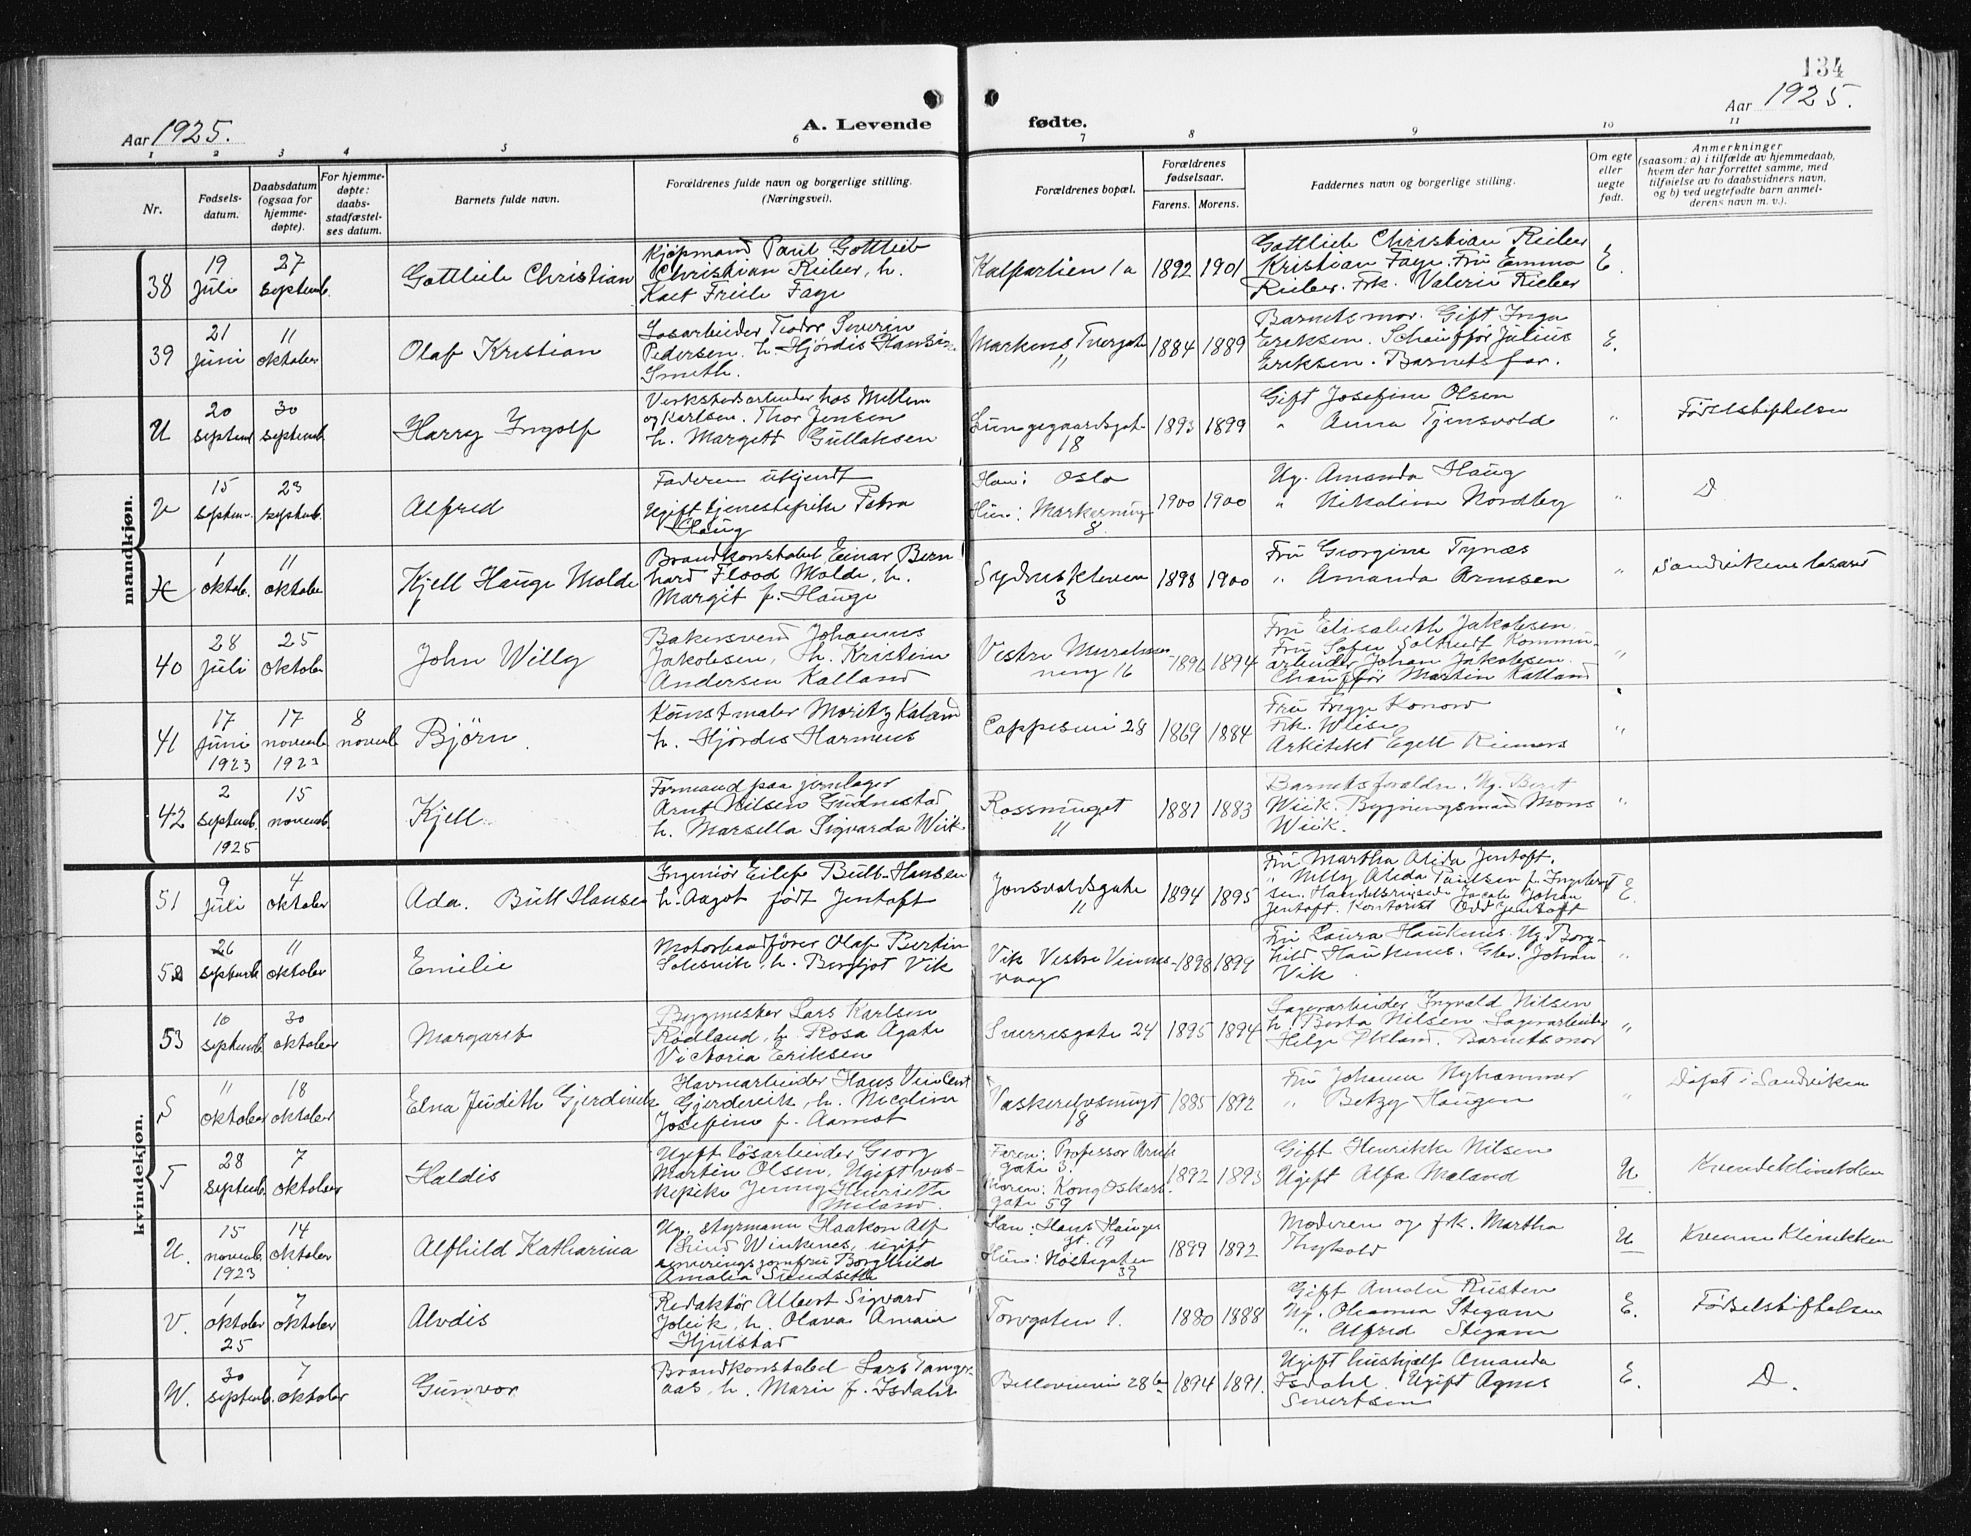 134
Aar 1925.
A. Levende fødte.
Aar 1925.
1 2 3 4 5 6 7 8 9 10 11
Nr.
Fødsels-
datum.
Daabsdatum
(ogsaa for
hjemme-
døpte).
For hjemme-
døpte:
daabs-
stadfæstel-
ses datum.
Barnets fulde navn.
Forældrenes fulde navn og borgerlige stilling.
(Næringsvei).
Forældrenes bopæl.
Forældrenes
fødselsaar.
Farens. Morens.
Faddernes navn og borgerlige stilling.
Om egte
eller
uegte
født.
Anmerkninger
(saasom: a) i tilfælde av hjemmedaab,
hvem der har forrettet samme, med
tilføielse av to daabsvidners navn,
og b) ved uegtefødte barn anmel-
derens navn m. v.).
mandkjøn.
38
19
Juli
27
septemb.
Gottlieb Christian
Kjøpmand Paul Gottlieb
Christian Rieber, h.
Kalfarlien 1a
1892 1901
Gottlieb Christian Rieber
Kristian Faye. Fru Emma
Rieber. Frk. Valerie Rieber
E.
39
21
Juni
11
oktober
Olaf Kristian
Løsarbeider Teodor Severin
Pedersen. h. Hjørdis Hansine
Smith.
Markens Tvergate
11
1884 1889
Barnets mor. Gift Inga
Eriksen. Schauffør Julius
Eriksen. Barnets far.
E.
U
20
septemb
30
septemb
Harry Ingolf
og Karlsen. Thor Jensen
h. Margett Gullaksen
Lungegaardsgate
18
1893 1899
Gift Josefine Olsen
" Anna
"
Fødselsstiftelsen
V
15
septem.
23
septemb.
Alfred
Faderen ukjendt
Ugift tjenestepike Petra
Haug
Han: Oslo
Hun:
8
1900 1900
Ug. Amanda Haug
" Nikoline Nordby
"
D
X
1
oktob.
11
oktober
Kjell Hauge Molde
Brandkonstabel Einar Bern
hard Flood Molde, h.
Margit f. Hauge
Sydneskleven
3
1898 1900
Fru Georgine Tynæs
" Amanda Arnesen
"
Sandvikens lasaret
40
28
Juli
25
oktober
John Willy
Bakersvend Johannes
Jakobsen, h. Kristine
Andersen Kalland
Vestre Muralmen
ning 16
1896 1894
Fru Elisabeth Jakobsen.
arbeider Johan Jakobsen.
Chauffør Martin Kalland
"
41
17
Juni
1923
17
novemb
1923
8
novemb
Bjørn
Kunstmaler Moritz Kaland
h. Hjørdis Harmens
Cappesvei 28
1869 1884
Fru Frigga Konow
Arkitekt Egill Reimers
"
42
2
septemb.
1925
15
novemb.
Kjell
Formand paa jernlager
Arnt Nilsen
h. Marsella Sigvarda Wiik
Rosesmuget
11
1881 1883
Barnets foreldre. Ug. Berit
Wiik. Bygningsmand Mons
Wiik.
"
kvindekjøn.
51
9
Juli
4
oktober
Ada. Bull Hansen
Ingeniør Eilif Bull-Hansen
h. Aagot født Jentoft
Jonsvoldsgate
11
1894 1895
Fru Martha Alida Jentoft.
Jentoft. Kontorist Odd Jentoft
E
52
26
septemb
11
oktober
Emilie
Motorbaadfører Olaf Bertin
Solesvik, h. Bergljot Vik
Vik Vestre Vinnes-
vaag
1898 1899
Fru Laura Haukenes. Ug. Borg-
hild Haukenes. Gbr. Johan
Vik
"
53
10
septemb.
30
oktober
Margaret
Bygmester Lars Karlsen
Rødland, h. Rosa Agate
Victoria Eriksen
Sverresgate 24
1895 1894
Lagerarbeider Ingvald Nilsen
h. Berta Nilsen. Lagerarbeider
Helge Økland. Barnets mor
"
S
11
oktober
18
oktober
Elna Judith Gjerdevik
Havnearbeider Hans Vincent
Gjerdevik, h. Nicoline
Josefine f. Aamot
Vaskerelvsmugt
18
1885 1892
Fru Johanna Nyhammer
" Betzy Haugen
"
Døpt i Sandviken
T
28
septemb.
7
oktober
Haldis
Ugift løsarbeider Georg
Martin Olsen, Ugift vas-
kepike Jenny Henriette
Meland.
Faren: Professor Arents
gate 3.
Moren: Kong Oskars
gate 59
1892 1893
Gift Henrikke Nilsen
Ugift Alfa Meland
U
Kvindeklinikken
U.
15
novemb.
1923
14
oktober
Alfhild Katharina
Ug. styrmann Haakon Alf
Lind Winknes, ugift
serveringsjomfru Borghild
Amalia Sundseth
Han: Hans Hauges
gt. 19
Hun: Nøstegaten
39
1899 1892
Moderen og frk. Martha
U
Kvinne Klinikken
V.
1
oktober
25
7
oktober
Alvdis
Redaktør Albert Sigvard
Joleik, h. Olava Amalie
Hjulstad
Torvgaten 1.
1880 1888
Gift Amalie Rusten
Ug. Oleanna Stegane
" Alfred Stegane
E.
Fødselsstiftelsen
W.
30
septemb.
7
oktober
Gunvor
Brandkonstabel Lars Tange-
aas, h. Marie f. Isdahl
Bellevuevei 28 b
1894 1891.
Ugift hushjelp Amanda
Isdahl. Ugift Agnes
Sivertsen
E.
D.